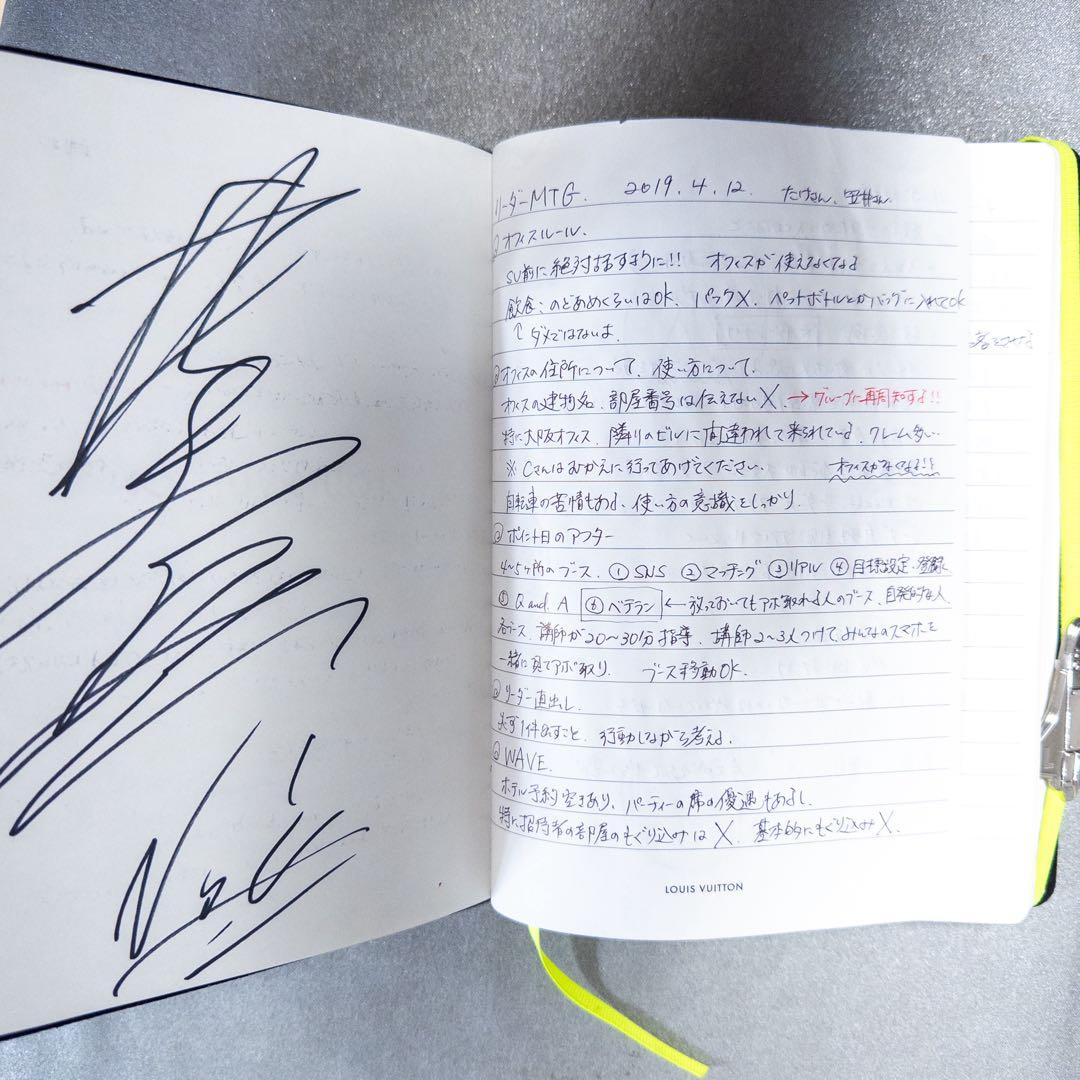 リーダーMTG. 2019.4.12. たけさん、
オフィスルール.
SV前に絶対話すように!! オフィスが使えなくなる
飲食:のどあめくらいはOK. パックX. ペットボトルとかバッグに入れてOK
↑ダメではないよ.
オフィスの住所について、使い方について.
オフィスの建物名、部屋番号は伝えないX. →グループに再周知する!!
特に大阪オフィス、隣りのビルに間違われて来られている、クレーム多い…
※Cさんはおむかえに行ってあげてください. オフィスがなくなる!!
自転車の苦情もある、使い方の意識をしっかり.
ポイント日のアフター
4〜5ヶ所のブース. ①SNS ②マッチング ③リアル ④目標設定・登録
⑤Q and A ⑥ベテラン ←放っておいてもアポ取れる人のブース、自発的な人
各ブース、講師が20〜30分指導、講師2〜3人つけて、みんなのスマホを
一緒に見てアポ取り. ブース移動OK.
リーダー直出し.
必ず1件出すこと、行動しながら考える.
WAVE.
ホテル予約空きあり、パーティーの席の優遇もあるし.
特に招待者の部屋のもぐり込みはX. 基本的にもぐり込みX.
LOUIS VUITTON